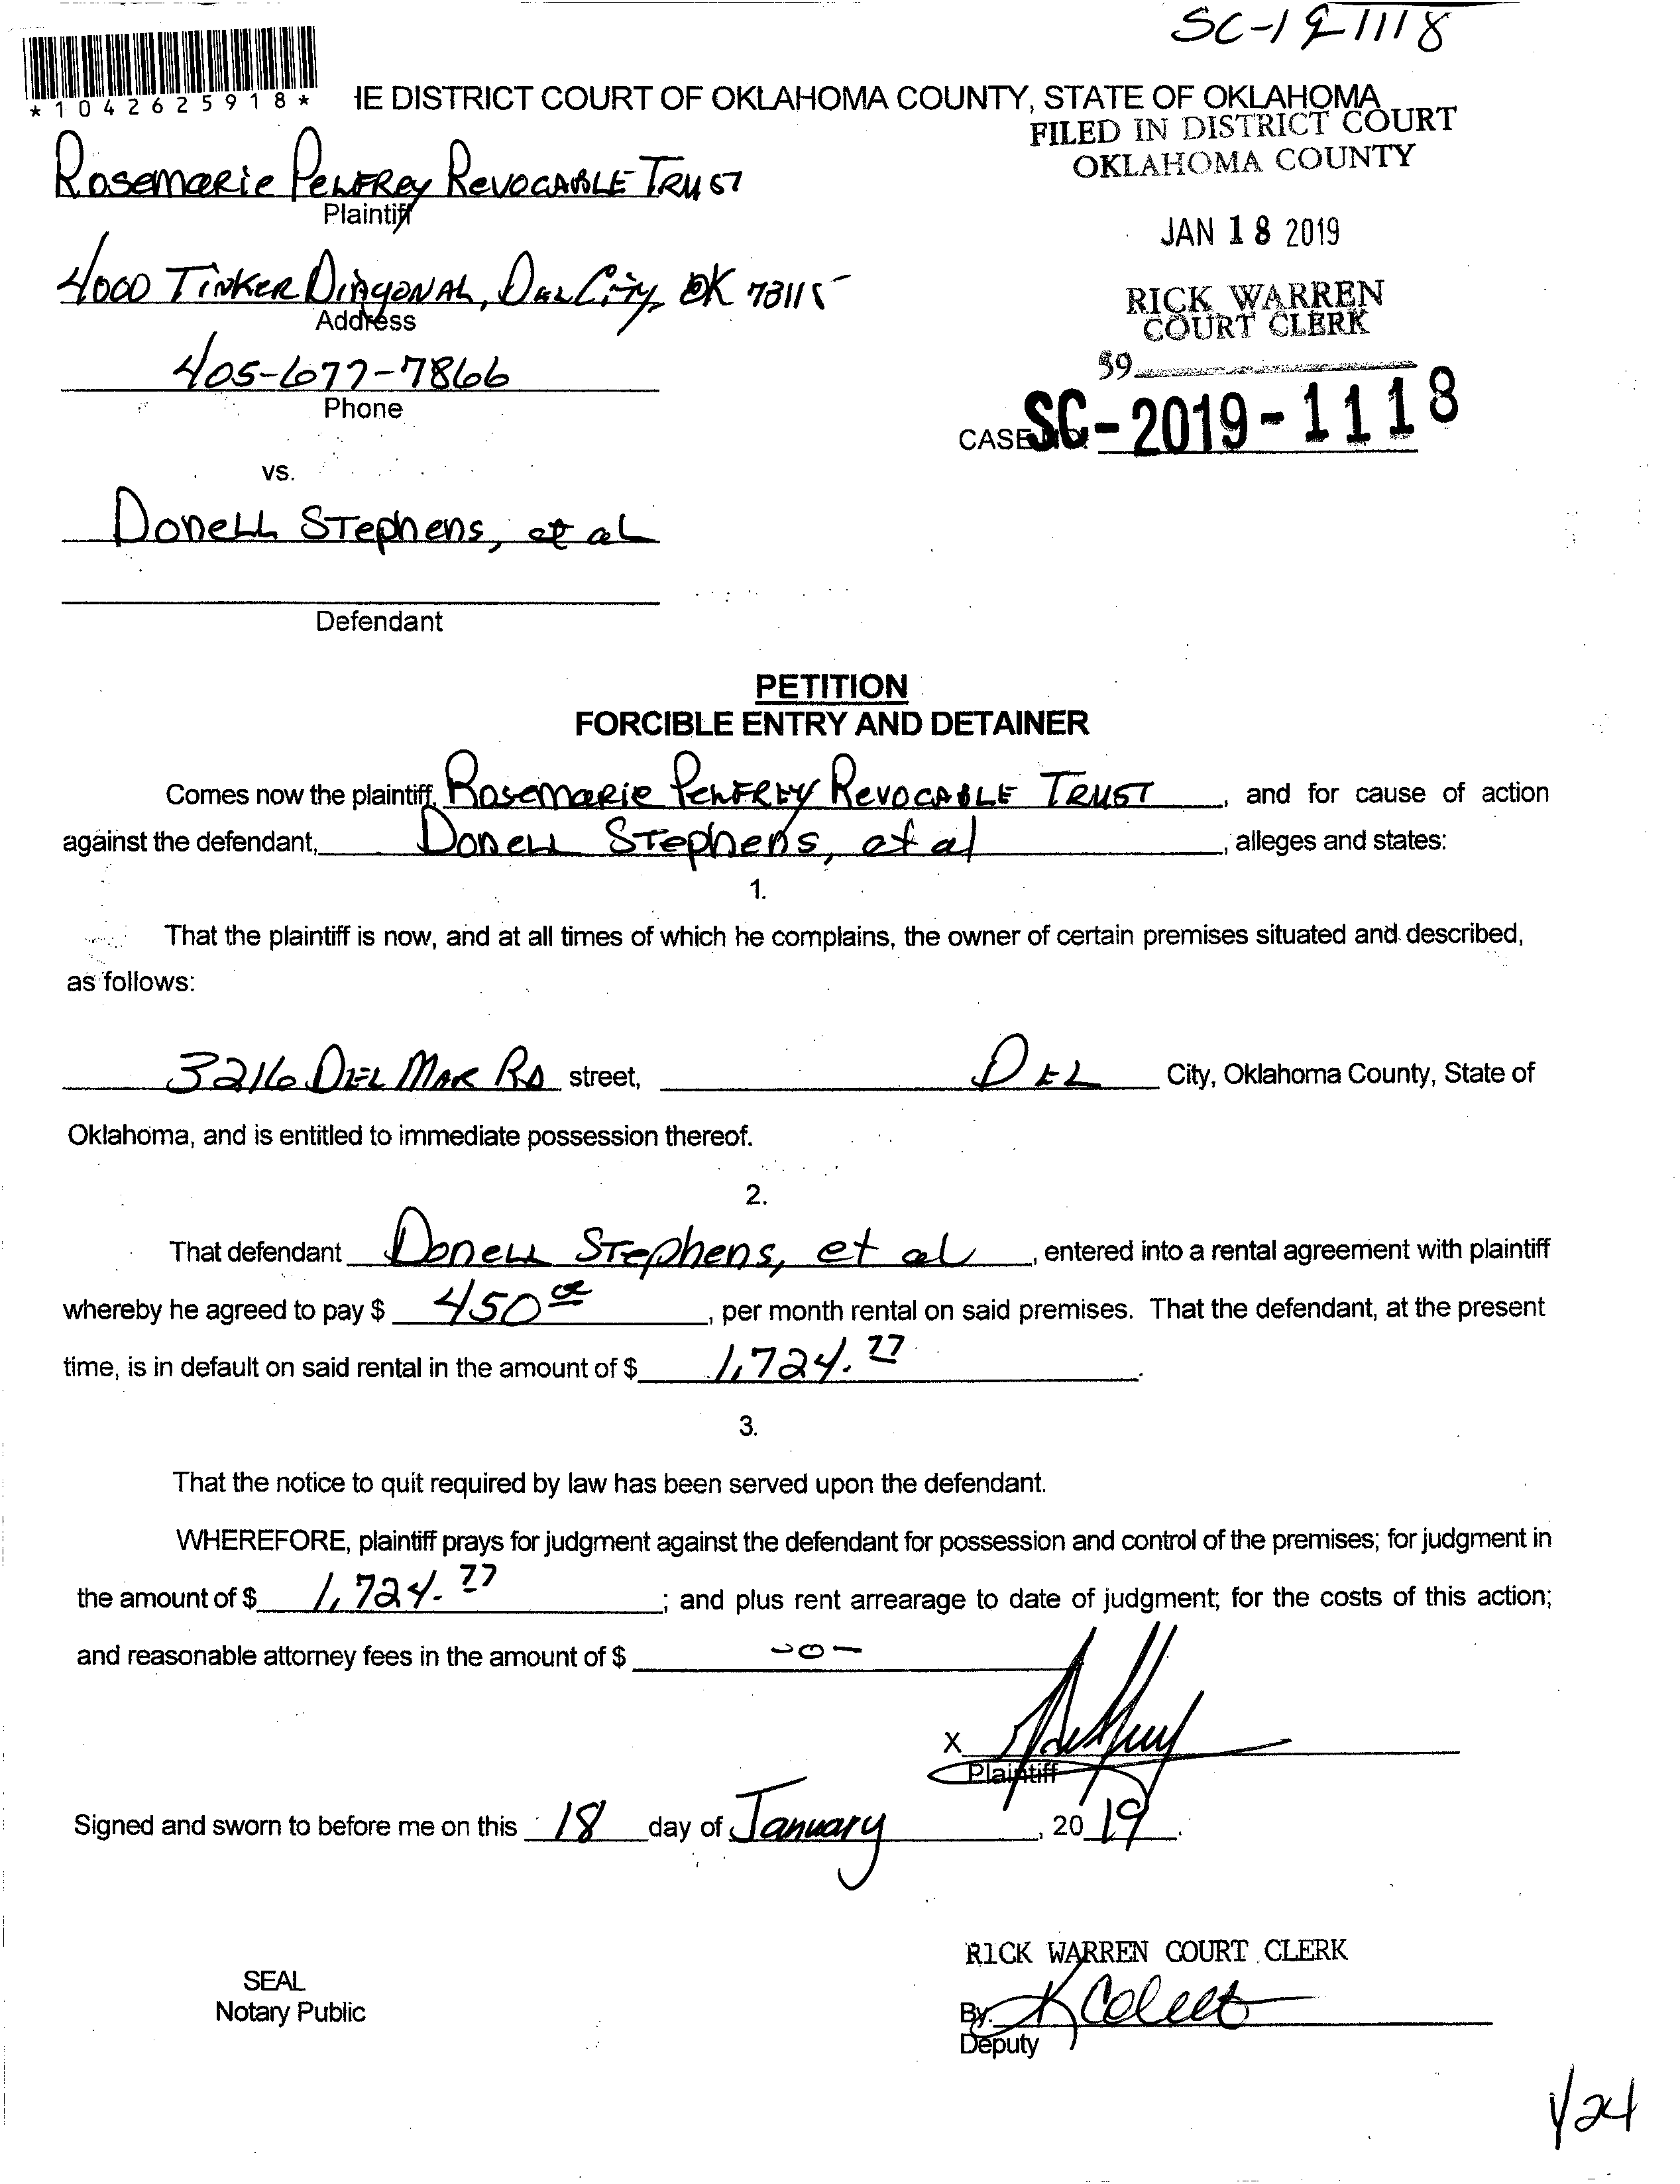 SC-19-1118
*1042625918*
IE DISTRICT COURT OF OKLAHOMA COUNTY, STATE OF OKLAHOMA
FILED IN DISTRICT COURT
OKLAHOMA COUNTY
Rosemarie Pelfrey Revocable Trust
Plaintiff
JAN 18 2019
4000 Tinker Diagonal, Del City, OK 73115
Address
RICK WARREN
COURT CLERK
405-677-7866
Phone
59
CASE NO. SC-2019-1118
vs.
Donell Stephens, et al
Defendant
PETITION
FORCIBLE ENTRY AND DETAINER
Comes now the plaintiff, Rosemarie Pelfrey Revocable Trust, and for cause of action
against the defendant, Donell Stephens, et al, alleges and states:
1.
That the plaintiff is now, and at all times of which he complains, the owner of certain premises situated and described,
as follows:
3216 Del Mar Rd street, Del City, Oklahoma County, State of
Oklahoma, and is entitled to immediate possession thereof.
2.
That defendant Donell Stephens, et al, entered into a rental agreement with plaintiff
whereby he agreed to pay $ 450 00, per month rental on said premises. That the defendant, at the present
time, is in default on said rental in the amount of $ 1,724.77.
3.
That the notice to quit required by law has been served upon the defendant.
WHEREFORE, plaintiff prays for judgment against the defendant for possession and control of the premises; for judgment in
the amount of $ 1,724.77; and plus rent arrearage to date of judgment; for the costs of this action;
and reasonable attorney fees in the amount of $ -0-
X
Plaintiff
Signed and sworn to before me on this 18 day of January, 2019.
RICK WARREN COURT CLERK
SEAL
Notary Public
By:
Deputy
1/24